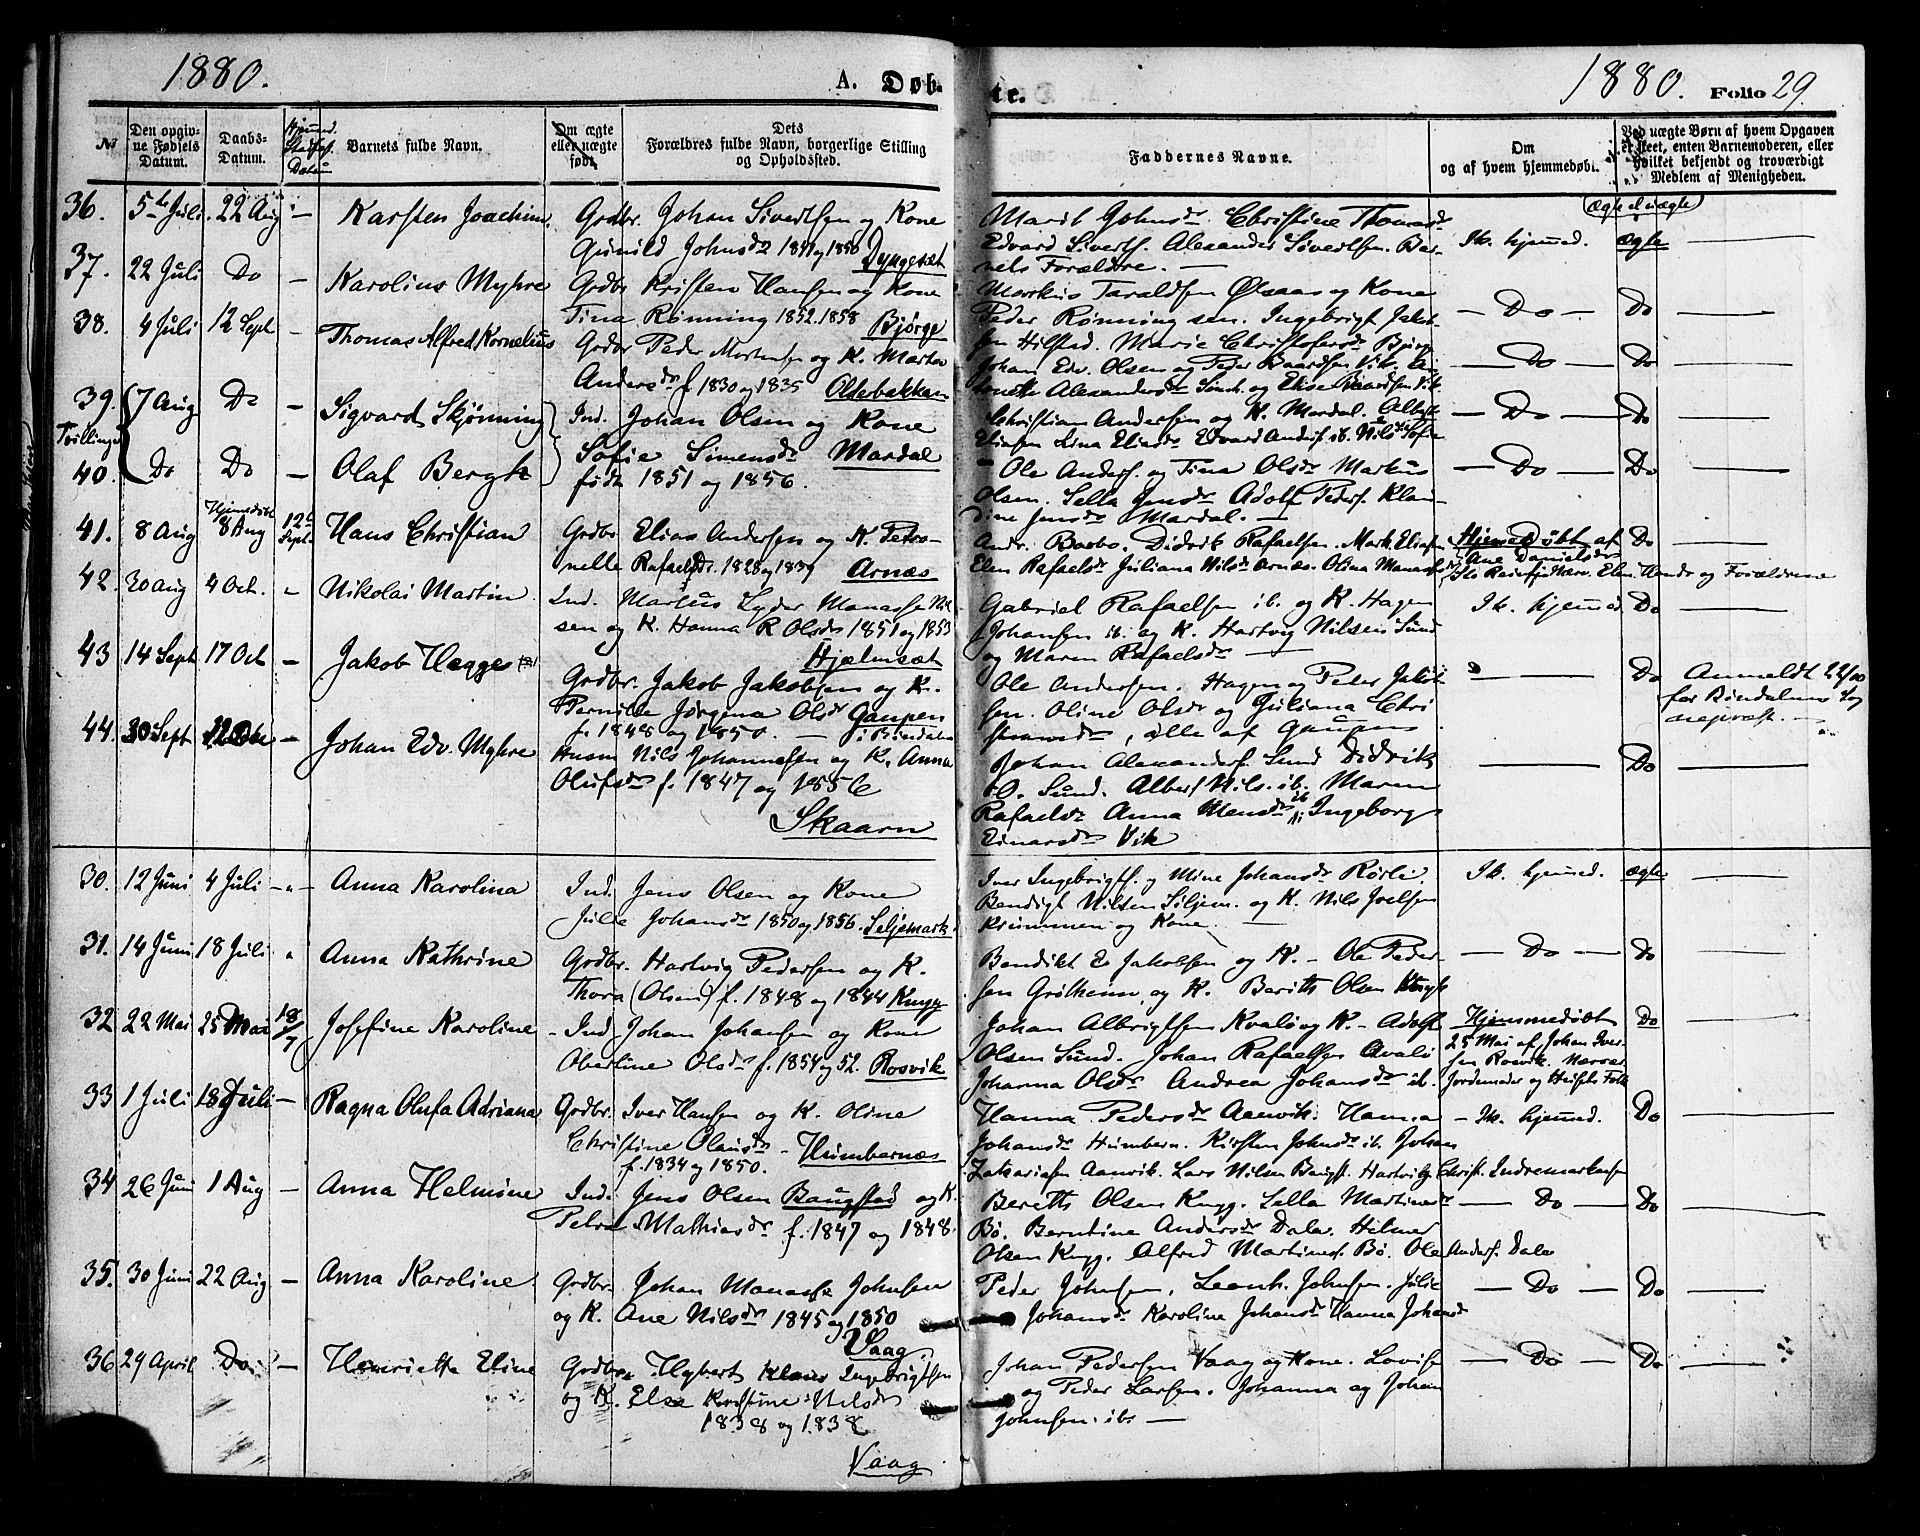 1880.
A. Døb-
te.
1880.
Folio 29.
№
Den opgiv-
ne Fødsels
Datum.
Daabs-
Datum.
Barnets fulde Navn.
Om ægte
eller uægte
født.
Dets
Forældres fulde Navn, borgerlige Stilling
og Opholdssted.
Faddernes Navne.
Om
og af hvem hjemmedøbt.
Ved uægte Børn af hvem Opgaven
er skeet, enten Barnemoderen, eller
hvilket bekjendt og troværdigt
Medlem af Menigheden.
Ægte el uægte
36. 5te Juli 22 Aug — Karsten Joachim.
Grdbr. Johan Sivertsen og Kone
Gunild Johnsdr 1850 Dyngesæt
Marit Johnsdr. Christine Thomasdr
Edvard Siverts. Alexander Sivertsen. Bar-
nets Forældre. —
Ik. hjemmed. ægte —
37. 22 Juli Do — Karolius Myhre
Grdbr Kristen Hansen og Kone
Tina Rønning 1852. 1858 Bjørge
Markus Taraldsen Ølsaas og Kone
Peder Rønning sen. Ingebrigt Jakob-
sen Hilstad. Marie Christofersdr Bjørge
— Do — Do —
38. 4 Juli 12 Sept — Thomas Alfred Kornelius
Grdbr Peder Mortensen og K. Marta
Andersdr f. 1830 og 1835 Olderbakken
Johan Edv. Olsen og Peder Baardsen Vik.
Alexandersdr Sund. og Elise Baardsen Vik
— Do — Do —
39. 7 Aug Do — Sigvard Skjønning
Tvillinger
Ind. Johan Olsen og Kone
Sofie Simensdr Mardal
født 1851 og 1856.
Christian Andersen og K. Mardal.
Eliasen Lina Eliasdr Edvard Anders. ib. Nils Sofie
— Do — Do —
40. Do Do — Olaf Bergh
Ole Anders. og Tina Olsdr Markus
Olsen. Sella Jensdr Adolf Peders. Klau-
dine Jensdr Mardal. —
— Do — Do —
41. 8 Aug Hjemmedøbt 8 Aug 12te Sept. Hans Christian
Grdbr Elias Andersen og K. Petro-
nelle Rafaelsdr. 1828 og Arnæs
Didrik Rafaelsen. Mark. Eliasen
Elen Rafaelsdr Juliana Nilsdr Arnæs. Olina Manassedr
Hjemmedøbt af
Ane Danielsdr
Do
42. 30 Aug 4 Oct. Nikolai Martin
Ind. Marius Lyder Manasse Nil-
sen og K. Hanna R Olsdr 1851 og 1853
Hjælmsæt
Gabriel Rafaelsen ib. og K. Hagen
Johansen ib. og K. Hartvig Nilsen Sund
og Maren Rafaelsdr —
Ik. hjemmed. Do —
43 14 Sept 17 Oct — Jakob Hegge
Grdbr. Jakob Jakobsen og K.
Pernille Jørgena Olsdr Gaupen
f. 1848 og 1850. — i Bindalen
Ole Andersen. Hagen og Peder Jakob-
sen. Oline Olsdr og Juliana Chri-
stiansdr, alle af Gaupen
— Do Anmeldt 22/10
for Bindalens Sog-
nepræst. —
44. 30 Sept — Johan Edv. Myhre
Husm Nils Johannesen og K. Anna
Olufsdr f. 1847 og 1856
Skaarn
Johan Alexanders. Sund Didrik
O. Sund. Albert Nils. ib. Maren
Rafaelsdr Anna Mensdr ib. Ingeborg
Einarsdr Vik
— Do —
30. 12 Juni 4 Juli — Anna Karolina
Ind. Jens Olsen og Kone
Julie Johansdr 1850 og 1856. Seljemark
Iver Ingebrigts. og Mine Johansdr Rørli.
Bendigt Nilsen Siljem. og K. Nils Joelsen
Krummen og Kone. —
Ik. hjemmed. ægte —
31. 14 Juni 18 Juli Anna Kathrine
Grdbr. Hartvig Pedersen og K.
Thora (Olsen) f. 1848 og 1844 Knyg
Bendikt E Jakobsen og K. — Ole Peder-
sen Grølheim og K. Berith Olsen Knyg
— Do — Do —
32 22 Mai 25 Mai 18/7 Josefine Karoline
Ind Johan Johansen og Kone
Oberline Olsdr f. 1854 og 52. Rosvik
Johan Albrigtsen Kvalø og K. — Adolf
Olsen Sund. Johan Rafaelsen Kvalø
Johanna Olsdr Andrea Johansdr ib.
Hjemmedøbt
25 Mai af Johan Iver-
sen Rosvik. Nærvær
Jordemoder og Husets Folk
Do —
33 1 Juli 18 Juli — Ragna Olufa Adriana
Grdbr. Iver Hansen og K. Oline
Christine Olausdr — Humbernæs
f. 1834 og 1850.
Hanna Pedersdr Aanvik. Hanna
Johansdr Humbern. Kirsten Johnsdr ib. Johan
Zakariasen Aanvik. Lars Nilsen Baugst. Hartvig Christ. Indremarkusen
— Ik. hjemmed. Do —
34 26 Juni 1 Aug — Anna Helmine
Ind. Jens Olsen Baugstad og K.
Petra Mathiasdr f. 1847 og 1848.
Berith Olsen Knyg. Sella Martinsdr
Bø. Berntine Andersdr Dale. Hilmer
Olsen Knyg. Alfred Martinus. Bø. Ole Anders. Dale
— Do — Do —
35. 30 Juni 22 Aug — Anna Karoline
Grdbr. Johan Manasse Johnsen
og K. Ane Nilsdr 1845 og 1850
Vaag.
Peder Johnsen, Leonh. Johnsen. Julie
Johansdr Karoline Johansdr Hanna Johansdr
— Do — Do —
36 29 April Do — Henrietta Eline
Grdbr. Hybert Klaus Ingebrigtsen
og K. Else Kristine Nilsdr
1838 og 1838
Vaag
Johan Pedersen Vaag og Kone. Lovise
og Peder Larsen. Johanna og Johan
Johnsen. ibs —
— Do — Do —